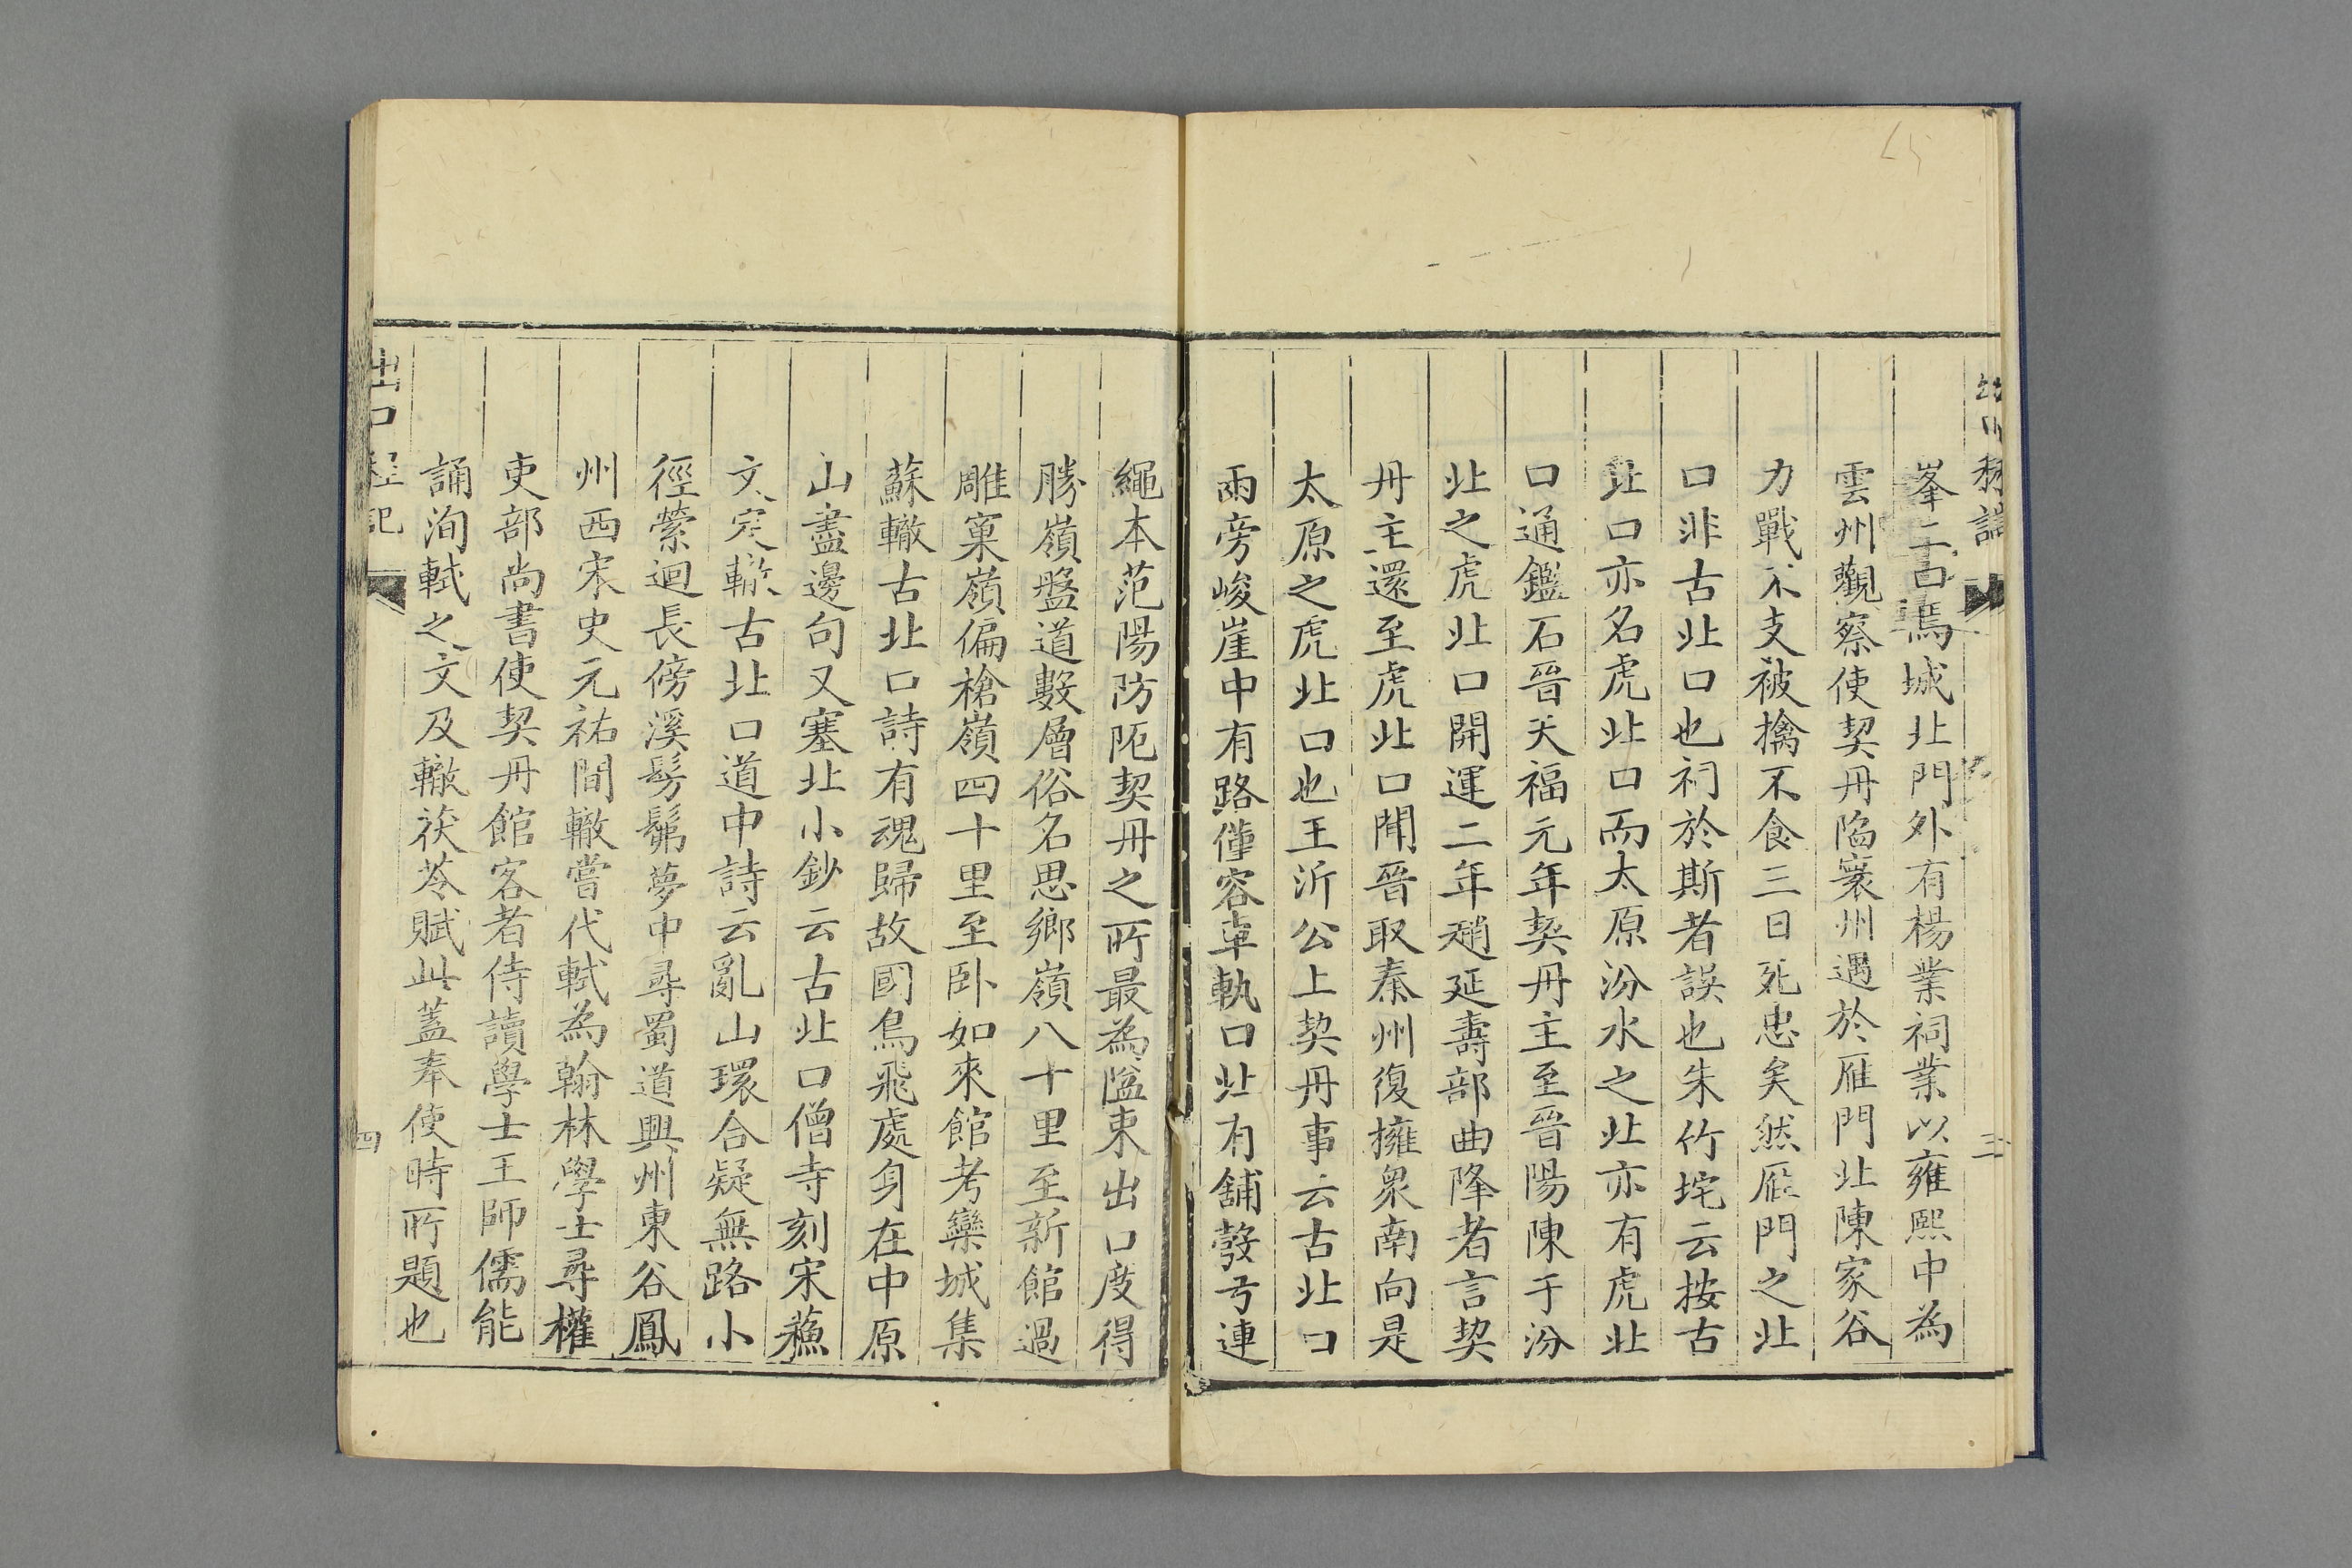 峯二口焉城北門外有楊業祠業以雍熙中為
雲州觀察使契丹陷寰州遇於雁門北陳家谷
力戰不支被擒不食三日死忠矣然雁門之北
口非古北口也祠於斯者誤也朱竹垞云按古
北口亦名虎北口而太原汾水之北亦有虎北
口通鑑石晉天福元年契丹主至晉陽陳于汾
北之虎北口開運二年趙延壽部曲降者言契
丹主還至虎北口聞晉取秦州復擁衆南向是
太原之虎北口也王沂公上契丹事云古北口
兩旁峻崖中有路僅容車軌口北有舖彀弓連
繩本范陽防阨契丹之所最為隘束出口度得
勝嶺盤道數層俗名思鄉嶺八十里至新館過
雕窠嶺偏槍嶺四十里至卧如來館考欒城集
蘇轍古北口詩有魂歸故國鳥飛處身在中原
山盡邊句又塞北小鈔云古北口僧寺刻宋蘓
文定轍古北口道中詩云亂山環合疑無路小
徑縈迴長傍溪髣髴夢中尋蜀道興州東谷鳳
州西宋史元祐間轍嘗代軾為翰林學士尋權
吏部尚書使契丹館客者侍讀學士王師儒能
誦洵軾之文及轍茯苓賦此蓋奉使時所題也
出口程記
四
三